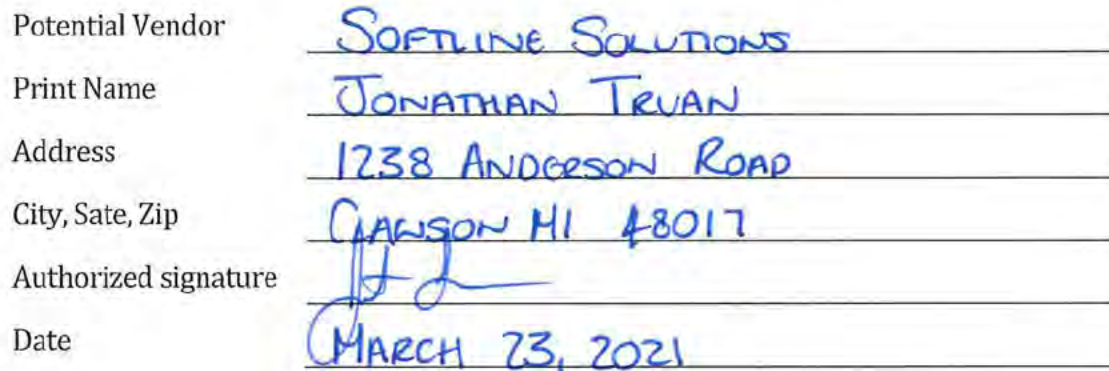 Potential Vendor SOFTLINE SOLUTIONS
Print Name JONATHAN TRUAN
Address 1238 ANDERSON ROAD
City, Sate, Zip CLAWSON MI 48017
Authorized signature
Date MARCH 23, 2021